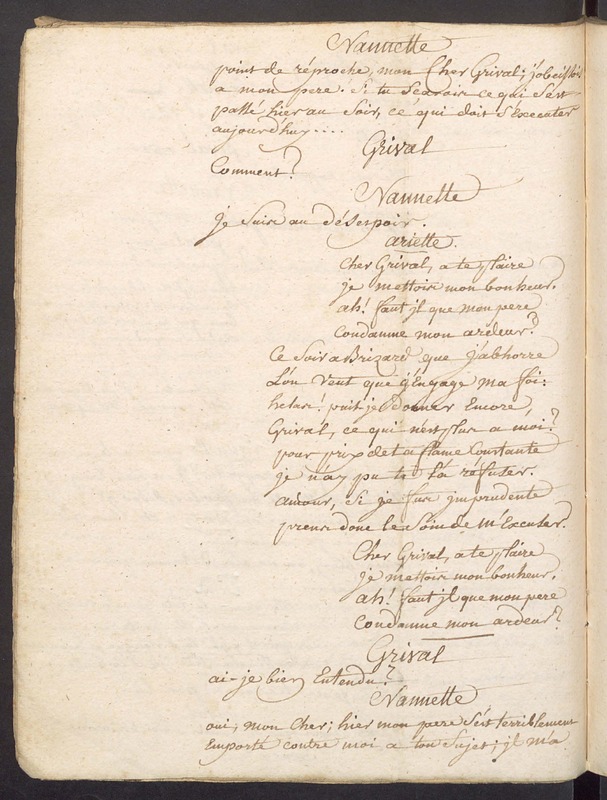 Nannette
point de réproche, mon Cher Grival; j'obéissois
a mon pere. Si tu Scavois ce qui S'est
passé hier au Soir, cé qui doit S'éxecuter
aujourd'huy....
Grival
Comment?
Nannette
je Suis au désespoir.
ariette.
Cher Grival, a te plaire
je mettois mon bonheur.
ah! faut jl que mon pere
Condamne mon ardeur?
Ce Soir a Brizard que j'abhorre
L'on Veut que j'Engage ma foi:
helas! puis je donner Encore,
Grival, ce qui n'est plus a moi?
pour prix de ta flame Constante
je n'ay pu te la réfuser.
amour, Si je fus jmprudente
prens donc le Soin de M'Excuser.
Cher Grival, a te plaire
je mettois mon bonheur.
ah! faut jl que mon pere
Condamne mon ardeur?
Grival
ai-je bien Entendu?
Nannette
oui, mon Cher; hier mon pere S'est terriblement
Emporté contre moi a ton Sujet; jl m'a